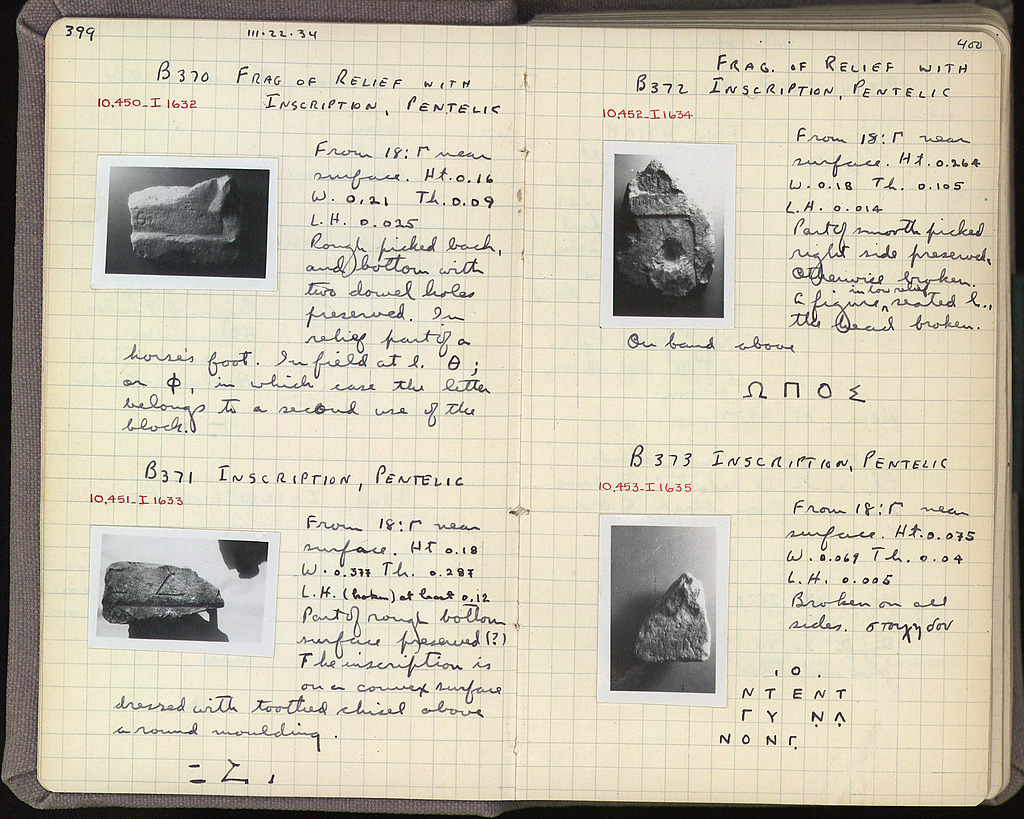 399
III·22·34
B370 FRAG OF RELIEF WITH
INSCRIPTION, PENTELIC
10,450_I 1632
From 18:Γ near
surface. Ht. 0.16
W. 0.21 Th. 0.09
L.H. 0.025
Rough picked back,
and bottom with
two dowel holes
preserved. In
relief part of a
horse's foot. In field at l. Θ;
or Φ, in which case the letter
belongs to a second use of the
block.
B371 INSCRIPTION, PENTELIC
10,451_I 1633
From 18:Γ near
surface. Ht 0.18
W. 0.377 Th. 0.287
L.H. (broken) at least 0.12
Part of rough bottom
surface preserved (?)
The inscription is
on a convex surface
dressed with toothed chisel above
a round moulding.
Σ
400
FRAG. OF RELIEF WITH
B372 INSCRIPTION, PENTELIC
10,452_I 1634
From 18:Γ near
surface. Ht. 0.264
W. 0.18 Th. 0.105
L.H. 0.014
Part of smooth picked
right side preserved.
Otherwise broken.
in low relief
A figure, seated l.,
the head broken.
On band above
Ω Π Ο Σ
B373 INSCRIPTION, PENTELIC
10,453_I 1635
From 18:Γ near
surface. Ht. 0.075
W. 0.069 Th. 0.04
L.H. 0.005
Broken on all
sides. στοιχηδον
. Ο .
Ν Τ Ε Ν Τ
Γ Υ Ṇ Λ̣
Ν Ο Ν Γ̣